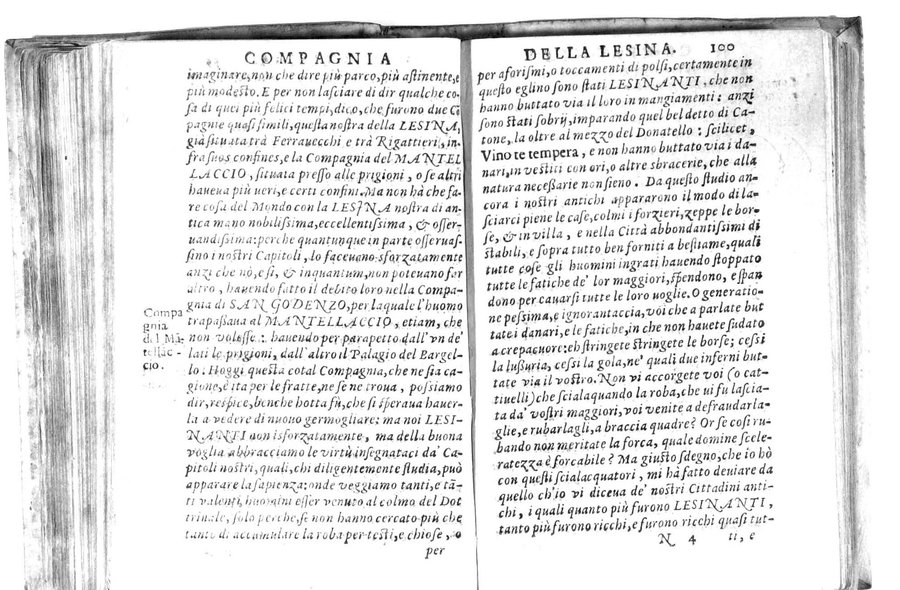 COMPAGNIA
imaginare, non che dire più parco, più astinente, e
più modesto. E per non lasciare di dir qualche co-
sa di quei più felici tempi, dico, che furono due Cõ
pagnie quasi simili, questa nostra della LESINA,
già situata trà Ferrauecchi e trà Rigattieri, in-
fra suos confines, e la Compagnia del MANTEL
LACCIO, situata presso alle prigioni, o se altri
haueua più ueri, e certi confini. Ma non hà che fa-
re cosa del Mondo con la LESINA nostra di an-
tica mano nobilissima, eccellentissima, & osser-
uandissima: perche quantunque in parte osseruas-
sino i nostri Capitoli, lo faceuano sforzatamente
anzi che nò, e si, & inquantum, non poteuano far
altro, hauendo fatto il debito loro nella Compa-
gnia di SAN GODENZO, per laquale l'huomo
trapassaua al MANTELLACCIO, etiam, che
non volesse: hauendo per parapetto dall'vn de'
lati le prigioni, dall'altro il Palagio del Bargel-
lo. Hoggi questa cotal Compagnia, che ne sia ca-
gione, è ita per le fratte, ne se ne troua, possiamo
dir, respice, benche hotta fù, che si speraua hauer-
la a vedere di nuouo germogliare: ma noi LESI-
NANTI non isforzatamente, ma della buona
voglia abbracciamo le virtù insegnataci da' Ca-
pitoli nostri, quali, chi diligentemente studia, può
apparare la sapienza: onde veggiamo tanti, e tã-
ti valenti huomini esser venuto al colmo del Dot
trinale, solo perche, se non hanno cercato più che
tanto di accumulare la roba per testi, e chiose, o
per
Compa
gnia
del Mã
tellac-
cio.
DELLA LESINA. 100
per aforismi, o toccamenti di polsi, certamente in
questo eglino sono stati LESINANTI, che non
hanno buttato via il loro in mangiamenti: anzi
sono stati sobrij, imparando quel bel detto di Ca-
tone, la oltre al mezzo del Donatello: scilicet,
Vino te tempera, e non hanno buttato via i da-
nari, in vestiti con ori, o altre sbracerie, che alla
natura necessarie non sieno. Da questo studio an-
cora i nostri antichi appararono il modo di la-
sciarci piene le case, colmi i forzieri, zeppe le bor-
se, & in villa, e nella Città abbondantissimi di
stabili, e sopra tutto ben forniti a bestiame, quali
tutte cose gli huomini ingrati hauendo stoppato
tutte le fatiche de' lor maggiori, spendono, e span
dono per cauarsi tutte le loro uoglie. O generatio-
ne pessima, e ignorantaccia, voi che a parlate but
tate i danari, e le fatiche, in che non hauete sudato
a crepacuore: eh stringete stringete le borse; cessi
la lussuria, cessi la gola, ne' quali due inferni but-
tate via il vostro. Non vi accorgete voi (o cat-
tiuelli) che scialaquando la roba, che ui fu lascia-
ta da' vostri maggiori, voi venite a defraudarla-
glie, e rubarlagli, a braccia quadre? Or se cosi ru-
bando non meritate la forca, quale domine scele-
ratezza è forcabile? Ma giusto sdegno, che io hò
con questi scialacquatori, mi hà fatto deuiare da
quello ch'io vi diceua de' nostri Cittadini anti-
chi, i quali quanto più furono LESINANTI,
tanto più furono ricchi, e furono ricchi quasi tut-
N 4 ti, e